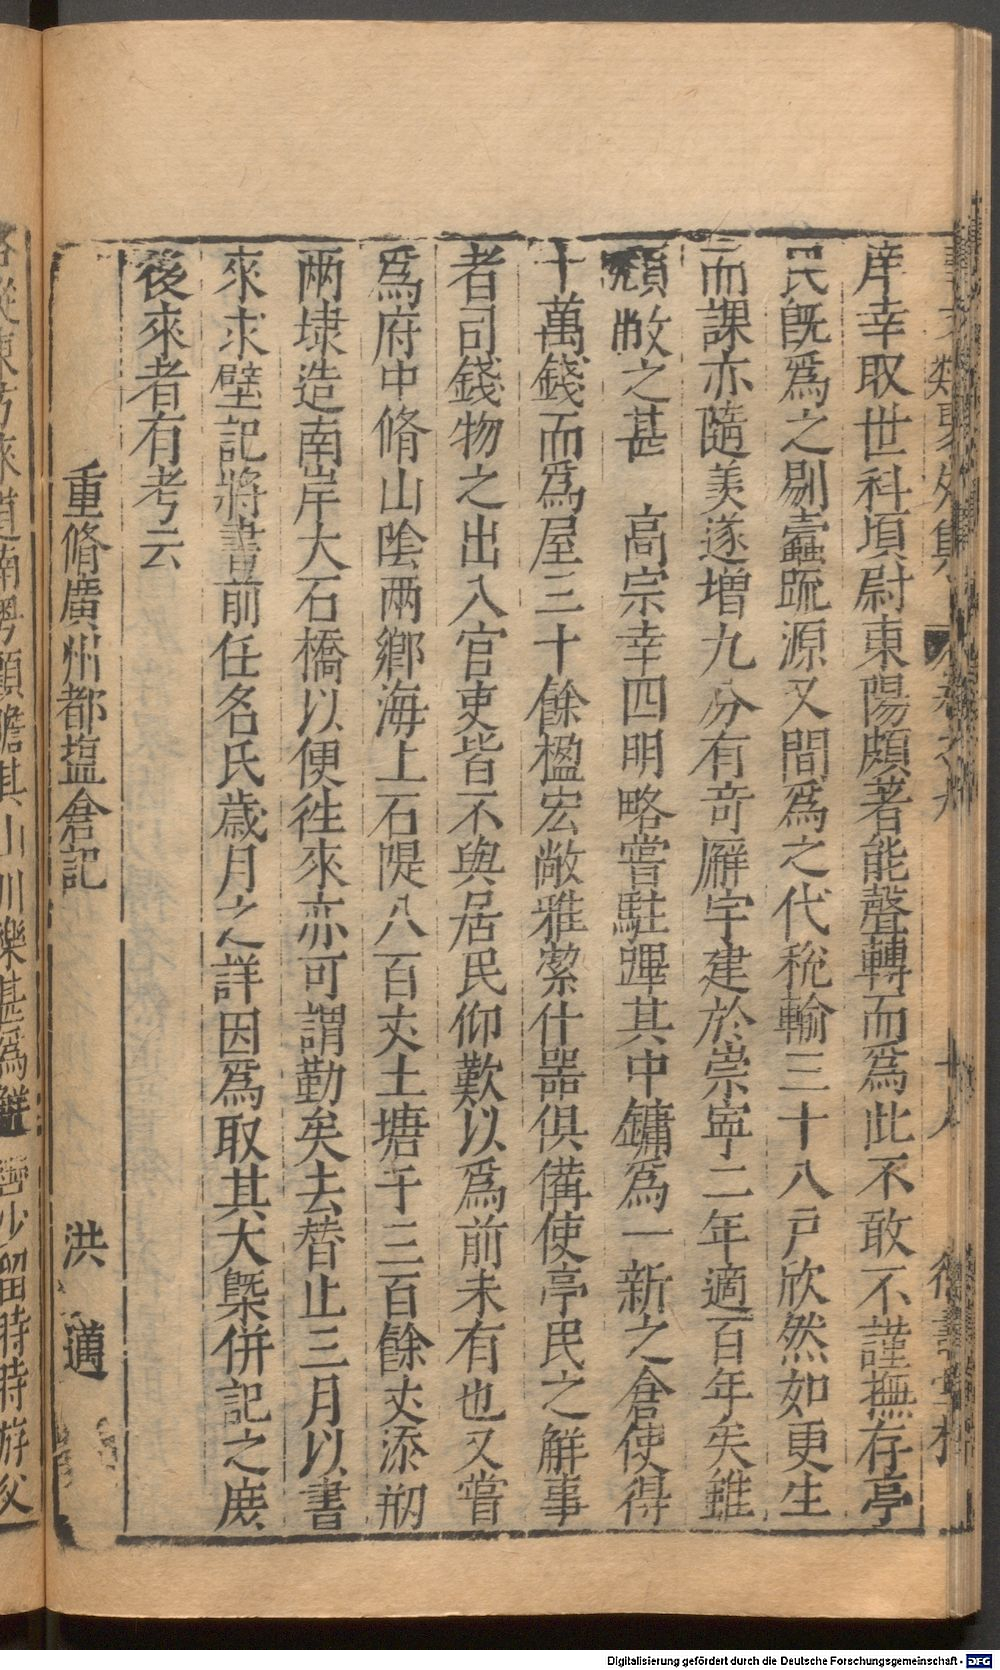 庠幸取世科頃尉東陽頗著能聲轉而爲此不敢不謹撫存亭
民旣爲之剔蠹䟽源又間爲之代稅輸三十八戸欣然如更生
而課亦隨羙遂增九分有竒廨宇建於崇寜二年適百年矣雖
頹敝之甚　高宗幸四明略嘗駐蹕其中鏞爲一新之倉使得
十萬錢而爲屋三十餘楹宏敞雅潔什噐俱備使亭民之解事
者司錢物之出入官吏皆不與居民仰歎以爲前未有也又嘗
爲府中脩山隂兩鄉海上石隄八百丈土塘千三百餘丈添剏
兩埭造南岸大石橋以便徃來亦可謂勤矣去替止三月以書
來求壁記將書前任名氏歳月之詳因爲取其大槩併記之庻
後來者有考云
重脩廣州都塩倉記　洪　邁
路從東方來道南粤顧瞻其山川樂甚爲　少留時時游
Digitalisierung gefördert durch die Deutsche Forschungsgemeinschaft - DFG